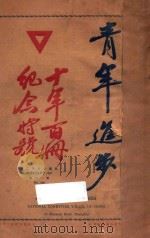 青年進步
十年百冊
紀念特號
NATIONAL COMMITTEE Y.M.C.A. OF CHINA